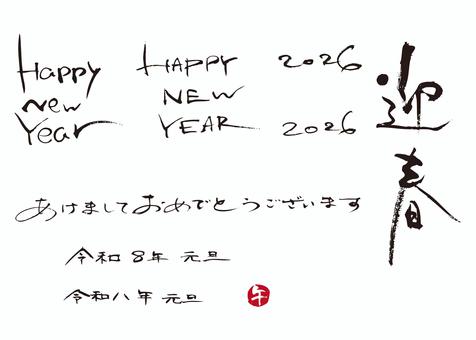 Happy
New
Year
HAPPY
NEW
YEAR
2026
2026
迎春
あけましておめでとうございます
令和8年 元旦
令和八年 元旦
午